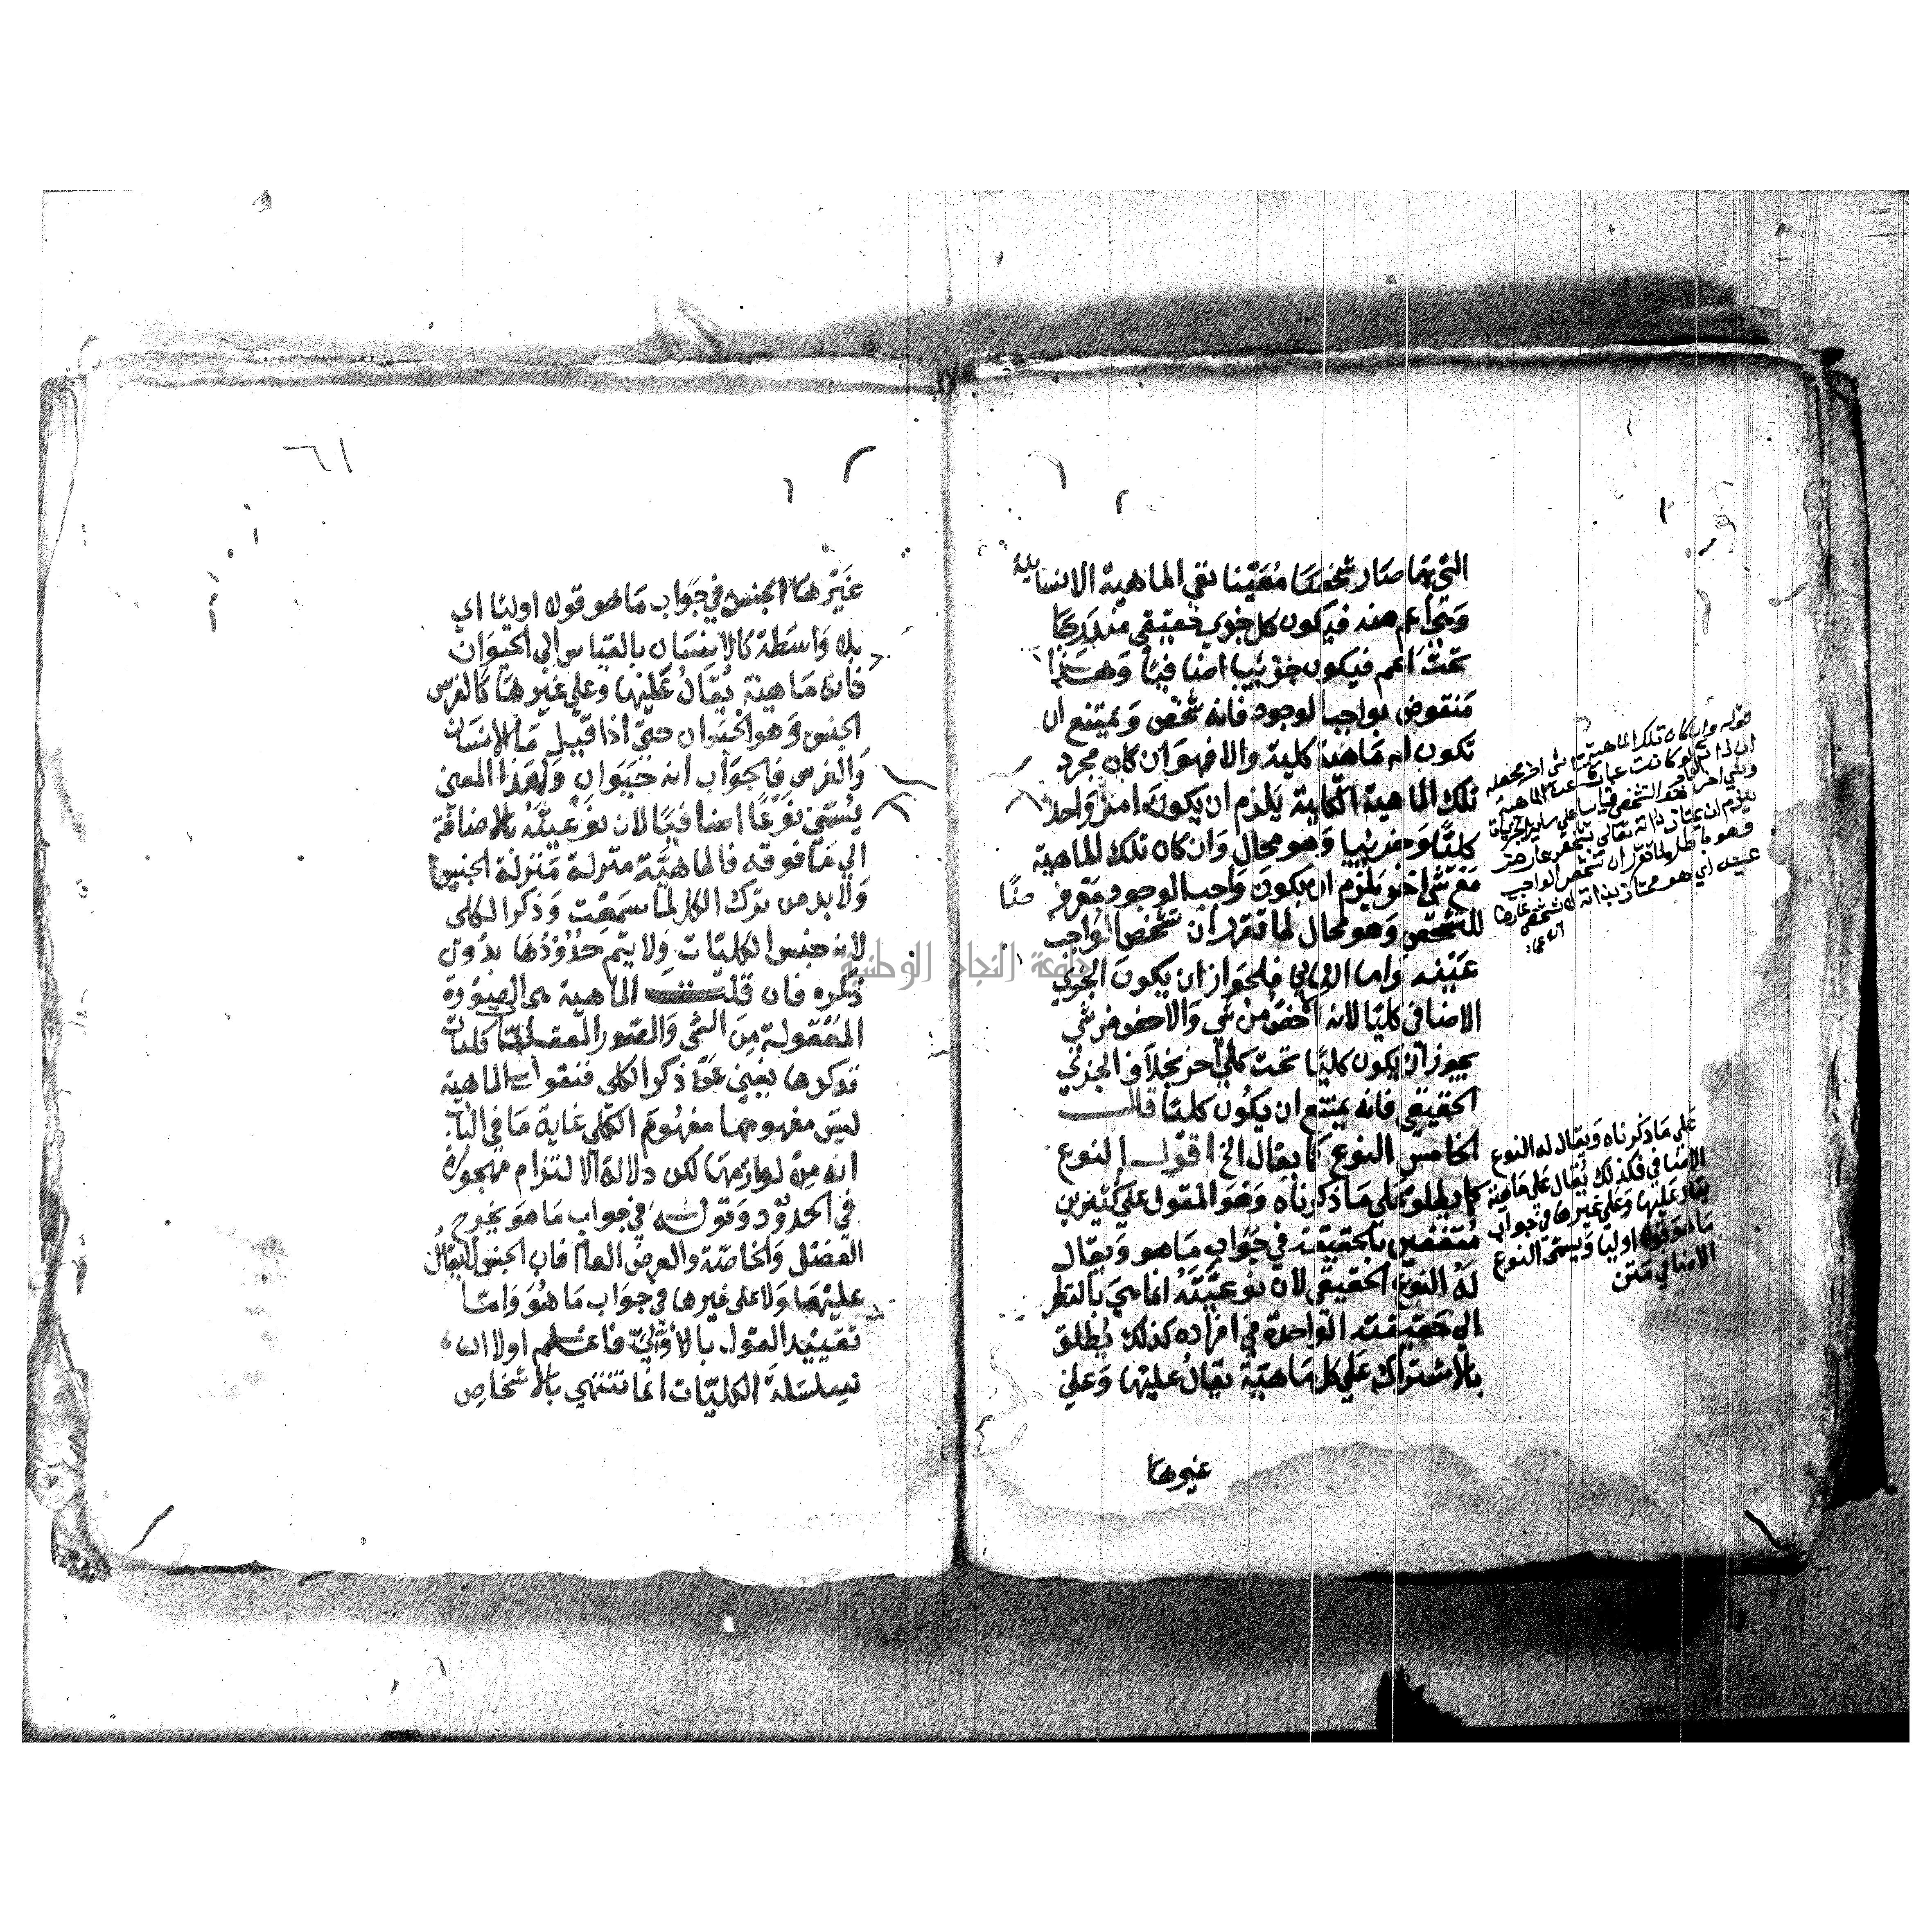 التي بها صار شخصا معينا بقي الماهية الانسانية
وهي اعم منه فيكون كل جزي حقيقي مندرجا
تحت اعم فيكون جزئيا اضافيا وهذا
منقوض بواجب الوجود فانه شخص ويمتنع ان
تكون له ماهية كلية والا فهو ان كان مجرد
تلك الماهية الكلية يلزم ان يكون امر واحد
كليا وجزئيا وهو محال وان كان تلك الماهية
مع شي اخر يلزم ان يكون واجب الوجود معروضا
للتشخص وهو محال لما تقرر ان تشخص الواجب
عينه واما الثاني فلجواز ان يكون الجزئي
الاضافي كليا لانه الاخص من شي والاخص من شي
يجوز ان يكون كليا تحت كلي اخر بخلاف الجزئي
الحقيقي فانه يمتنع ان يكون كليا قال
الخامس النوع كما يقال الخ اقول النوع
كما يطلق علي ما ذكرناه وهو المقول علي كثيرين
متفقين بالحقيقة في جواب ما هو ويقال
له النوع الحقيقي لان نوعيته انما هي بالنظر
الي حقيقته الواحدة في افراده كذلك يطلق
بالاشتراك علي كل ماهية يقال عليها وعلي
غيرها
قوله وان كان تلك الماهية مع شي اخر
علي ما ذكرناه ويقال له النوع
الاضافي فكذلك يقال علي ماهية
يقال عليها وعلي غيرها في جواب
ما هو قولا اوليا ويسمي النوع
الاضافي متن
٦١
غيرها الجنس في جواب ما هو قولا اوليا اي
بلا واسطة كالانسان بالقياس الي الحيوان
فانه ماهية يقال عليها وعلي غيرها كالفرس
الجنس وهو الحيوان حتي اذا قيل ما الانسان
والفرس فالجواب انه حيوان ولهذا المعني
يسمي نوعا اضافيا لان نوعيته بالاضافة
الي ما فوقه فالماهية منزلة منزلة الجنس
ولا بد من ترك الكل لما سمعت وذكر الكلي
لانه جنس الكليات ولا يتم حدودها بدون
ذكره فان قلت الماهية هي الصورة
المعقولة من الشي والصور العقلية كليات
فذكرها يغني عن ذكر الكلي فنقول الماهية
ليس مفهومها مفهوم الكلي غاية ما في الباب
انه من لوازمها لكن دلالة الالتزام مهجورة
في الحدود وقوله في جواب ما هو يخرج
الفصل والخاصة والعرض العام فان الجنس لا يقال
عليها ولا علي غيرها في جواب ما هو واما
تقييد القول بالاولي فاعلم اولا ان
سلسلة الكليات انما تنتهي بالاشخاص
جامعة النجاح الوطنية